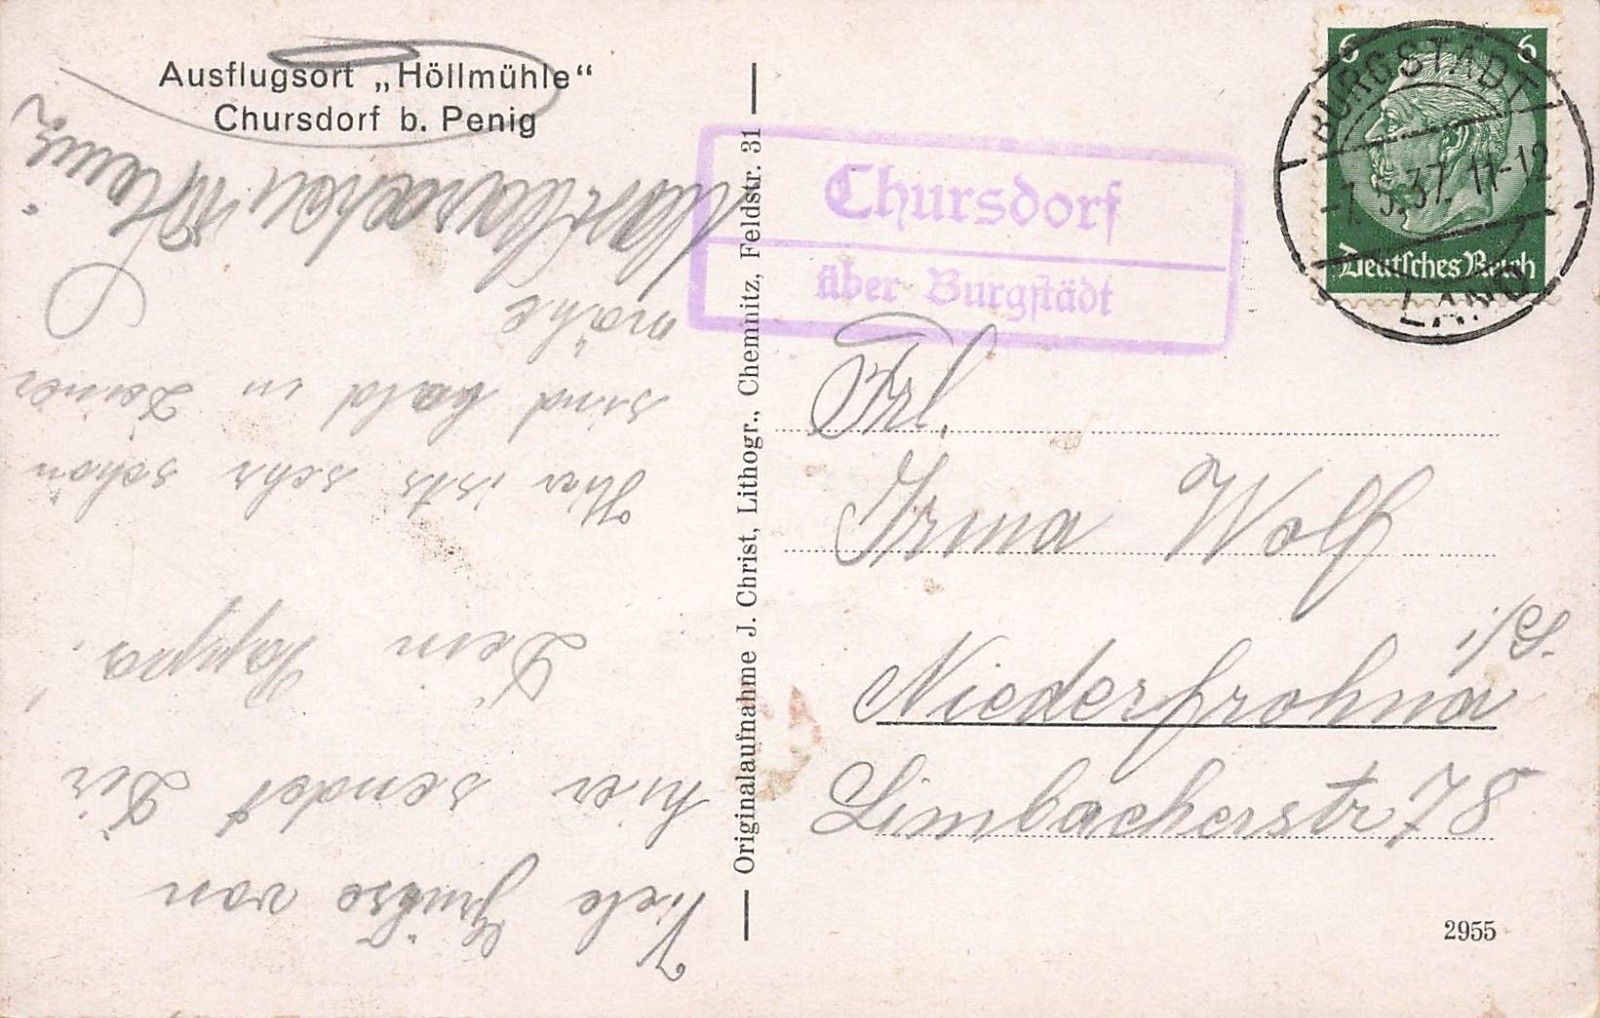 Ausflugsort „Höllmühle“
Chursdorf b. Penig
Viele Grüsse von
hier sendet Dir
Dein Pappa.
Hier ists sehr schön
sind bald in Deiner
nähe
Originalaufnahme J. Christ, Lithogr., Chemnitz, Feldstr. 31
Chursdorf
über Burgstädt
6 6
Deutsches Reich
BURGSTÄDT
-7.5.37. 11-12
LAND
Frl.
Irma Wolf
Niederfrohna i/S.
Limbacherstr 78
2955